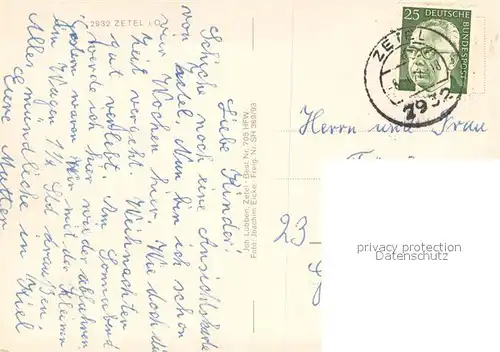 2932 ZETEL i.O.
Liebe Kinder!
Schicke noch eine Ansichtskarte
von Zetel. Nun bin ich schon
vier Wochen hier. Wie doch die
Zeit vergeht. Weihnachten
gut verlebt. Am Sonnabend
werde ich hier wieder abfahren.
Gestern waren wir mit der kleinen
im Wagen 1½ Std draußen.
Alles mündliche in Kiel
Eure Mutter
Joh. Lübben, Zetel · Best. Nr. 705 HFW
Foto: Joachim Eicke, Freig. Nr. SH 369/93
25 DEUTSCHE BUNDESPOST
ZETEL
2932
Herrn und Frau
23
privacy protection
VERDECKT